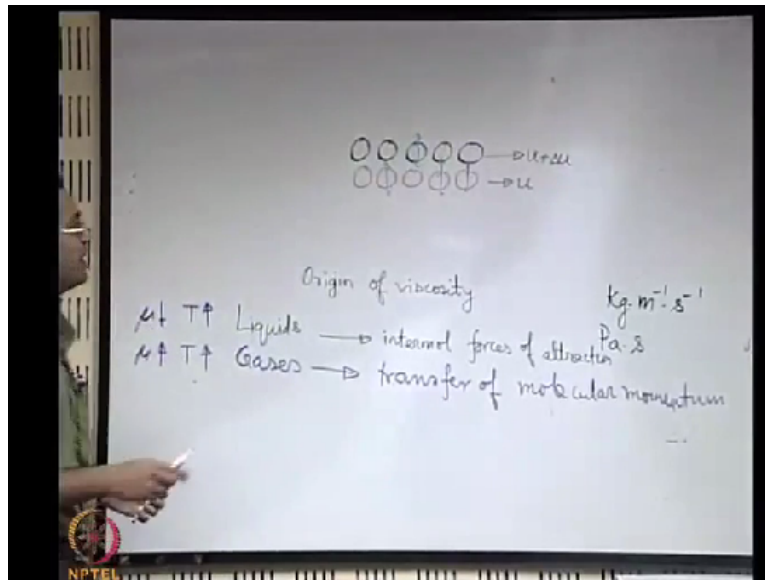 → u+Δu
→ u
Origin of viscosity
Kg. m⁻¹. s⁻¹
Pa. s
μ↓ T↑ Liquids → intermol forces of attraction
μ↑ T↑ Gases → transfer of molecular momentum
NPTEL